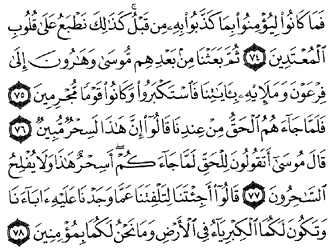 فَمَا كَانُوا۟ لِيُؤْمِنُوا۟ بِمَا كَذَّبُوا۟ بِهِۦ مِن قَبْلُ ۚ كَذَٰلِكَ نَطْبَعُ عَلَىٰ قُلُوبِ
ٱلْمُعْتَدِينَ ٧٤ ثُمَّ بَعَثْنَا مِنۢ بَعْدِهِم مُّوسَىٰ وَهَٰرُونَ إِلَىٰ
فِرْعَوْنَ وَمَلَإِي۟هِۦ بِـَٔايَٰتِنَا فَٱسْتَكْبَرُوا۟ وَكَانُوا۟ قَوْمًا مُّجْرِمِينَ ٧٥
فَلَمَّا جَآءَهُمُ ٱلْحَقُّ مِنْ عِندِنَا قَالُوٓا۟ إِنَّ هَٰذَا لَسِحْرٌ مُّبِينٌ ٧٦
قَالَ مُوسَىٰٓ أَتَقُولُونَ لِلْحَقِّ لَمَّا جَآءَكُمْ ۖ أَسِحْرٌ هَٰذَا وَلَا يُفْلِحُ
ٱلسَّٰحِرُونَ ٧٧ قَالُوٓا۟ أَجِئْتَنَا لِتَلْفِتَنَا عَمَّا وَجَدْنَا عَلَيْهِ ءَابَآءَنَا
وَتَكُونَ لَكُمَا ٱلْكِبْرِيَآءُ فِى ٱلْأَرْضِ وَمَا نَحْنُ لَكُمَا بِمُؤْمِنِينَ ٧٨